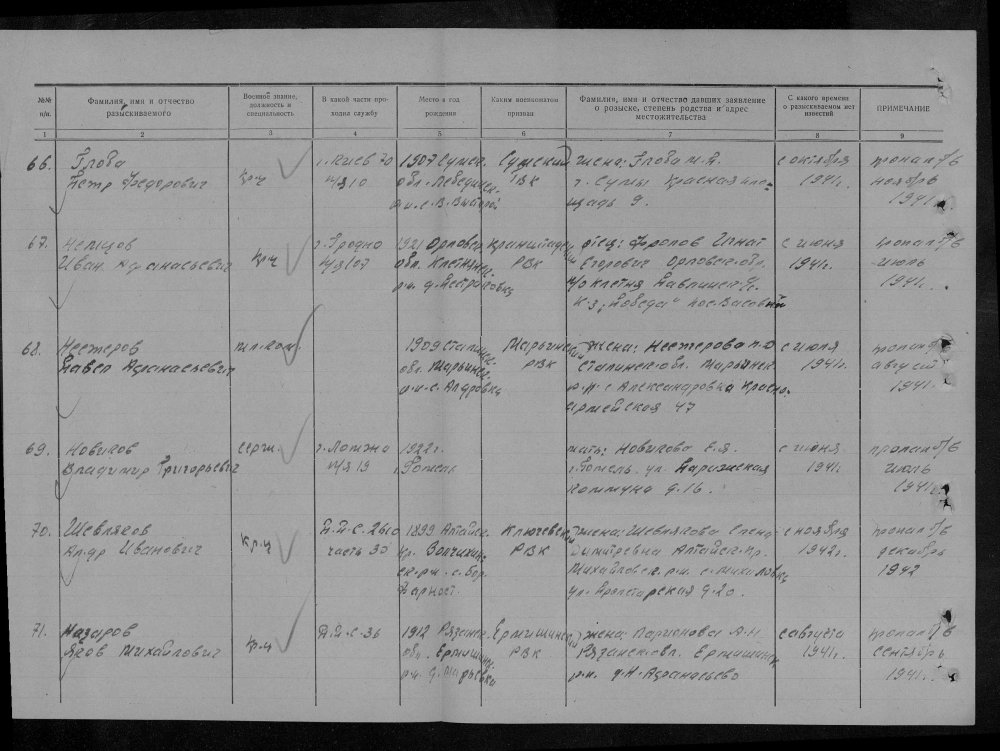 №№ п/п. Фамилия, имя и отчество разыскиваемого Военное звание, должность и специальность В какой части проходил службу Место и год рождения Каким военкоматом призван Фамилия, имя и отчество давших заявление о розыске, степень родства и адрес местожительства С какого времени о разыскиваемом нет известий ПРИМЕЧАНИЕ
1 2 3 4 5 6 7 8 9
66. Глоба г. Киев 70 1907 Сумск. Сумский жена: Глоба с октября пропал б/в
Петр Федорович кр-ц п/я 10 обл. Лебединск. РВК г. Сумы Красная пло- 1941г. ноябрь
р-н с. В. щадь 9. 1941г.
67. Немцов г. Гродно 1921 Орловск. отец: Фролов Игнат с июня пропал б/в
Иван Афанасьевич кр-ц п/я 107 обл. Клетнянс. РВК Егорович Орловск. обр. 1941г. июль
р-н д. п/о Клетня 1941г.
к-з "Победа" пос.
68. Нестеров мл. ком. 1909 Сталинск. Марьинский жена: Нестерова с июля пропал б/в
Павел Афанасьевич обл. Марьинск. РВК Сталинск. обл. Марьинск. 1941г. август
р-н с. Алдровка р-н с. Александровка Красно- 1941г.
армейская 47
69. Новиков серж. г. Ломжа 1922г. мать: Новикова Е.Я. с июня пропал б/в
Владимир Григорьевич п/я 19 г. Гомель г. Гомель ул. Парижская 1941г. июль
Коммуна д. 16. 1941г.
70. Шевляков П.П.С. 2610 1899 Алтайск. Ключевск. жена: Шевлякова Елена с ноября пропал б/в
Ал-др Иванович кр-ц часть 30 кр. Волчихинс- РВК Димитревна Алтайск. кр. 1942г. декабрь
ск. р-н. с. Бор. Михайловск. р-н. с. Михаловка 1942
ул. Пролетарская д. 20.
71. Назаров П.П.С-36 1912 Рязанск. Ермишинский жена: Ларионова А.Н. с августа пропал б/в
Яков Михайлович кр-ц обл. Ермишинс. РВК Рязанск. обл. Ермишинск. 1941г. сентябрь
р-н д. Марьевка р-н д. Н-Афанасьево 1941г.